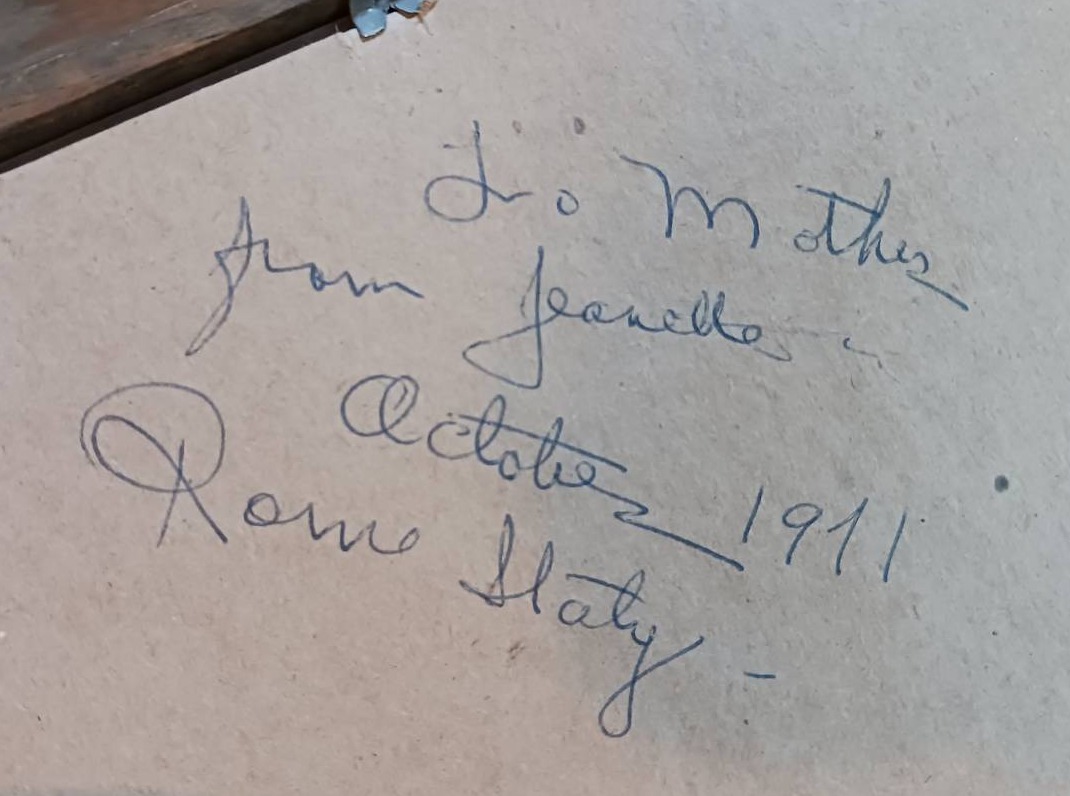 To Mother
from Jeanette
October 1911
Rome Italy -